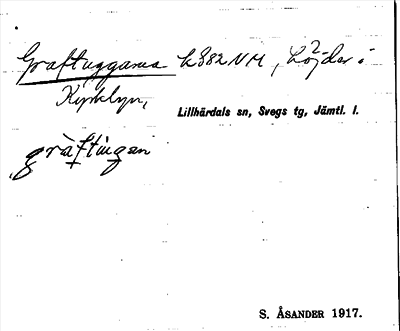 Graftuggarna k382NM, Löjder i
Kyrkbyn,
Lillhärdals sn, Svegs tg, Jämtl. l.
S. ÅSANDER 1917.